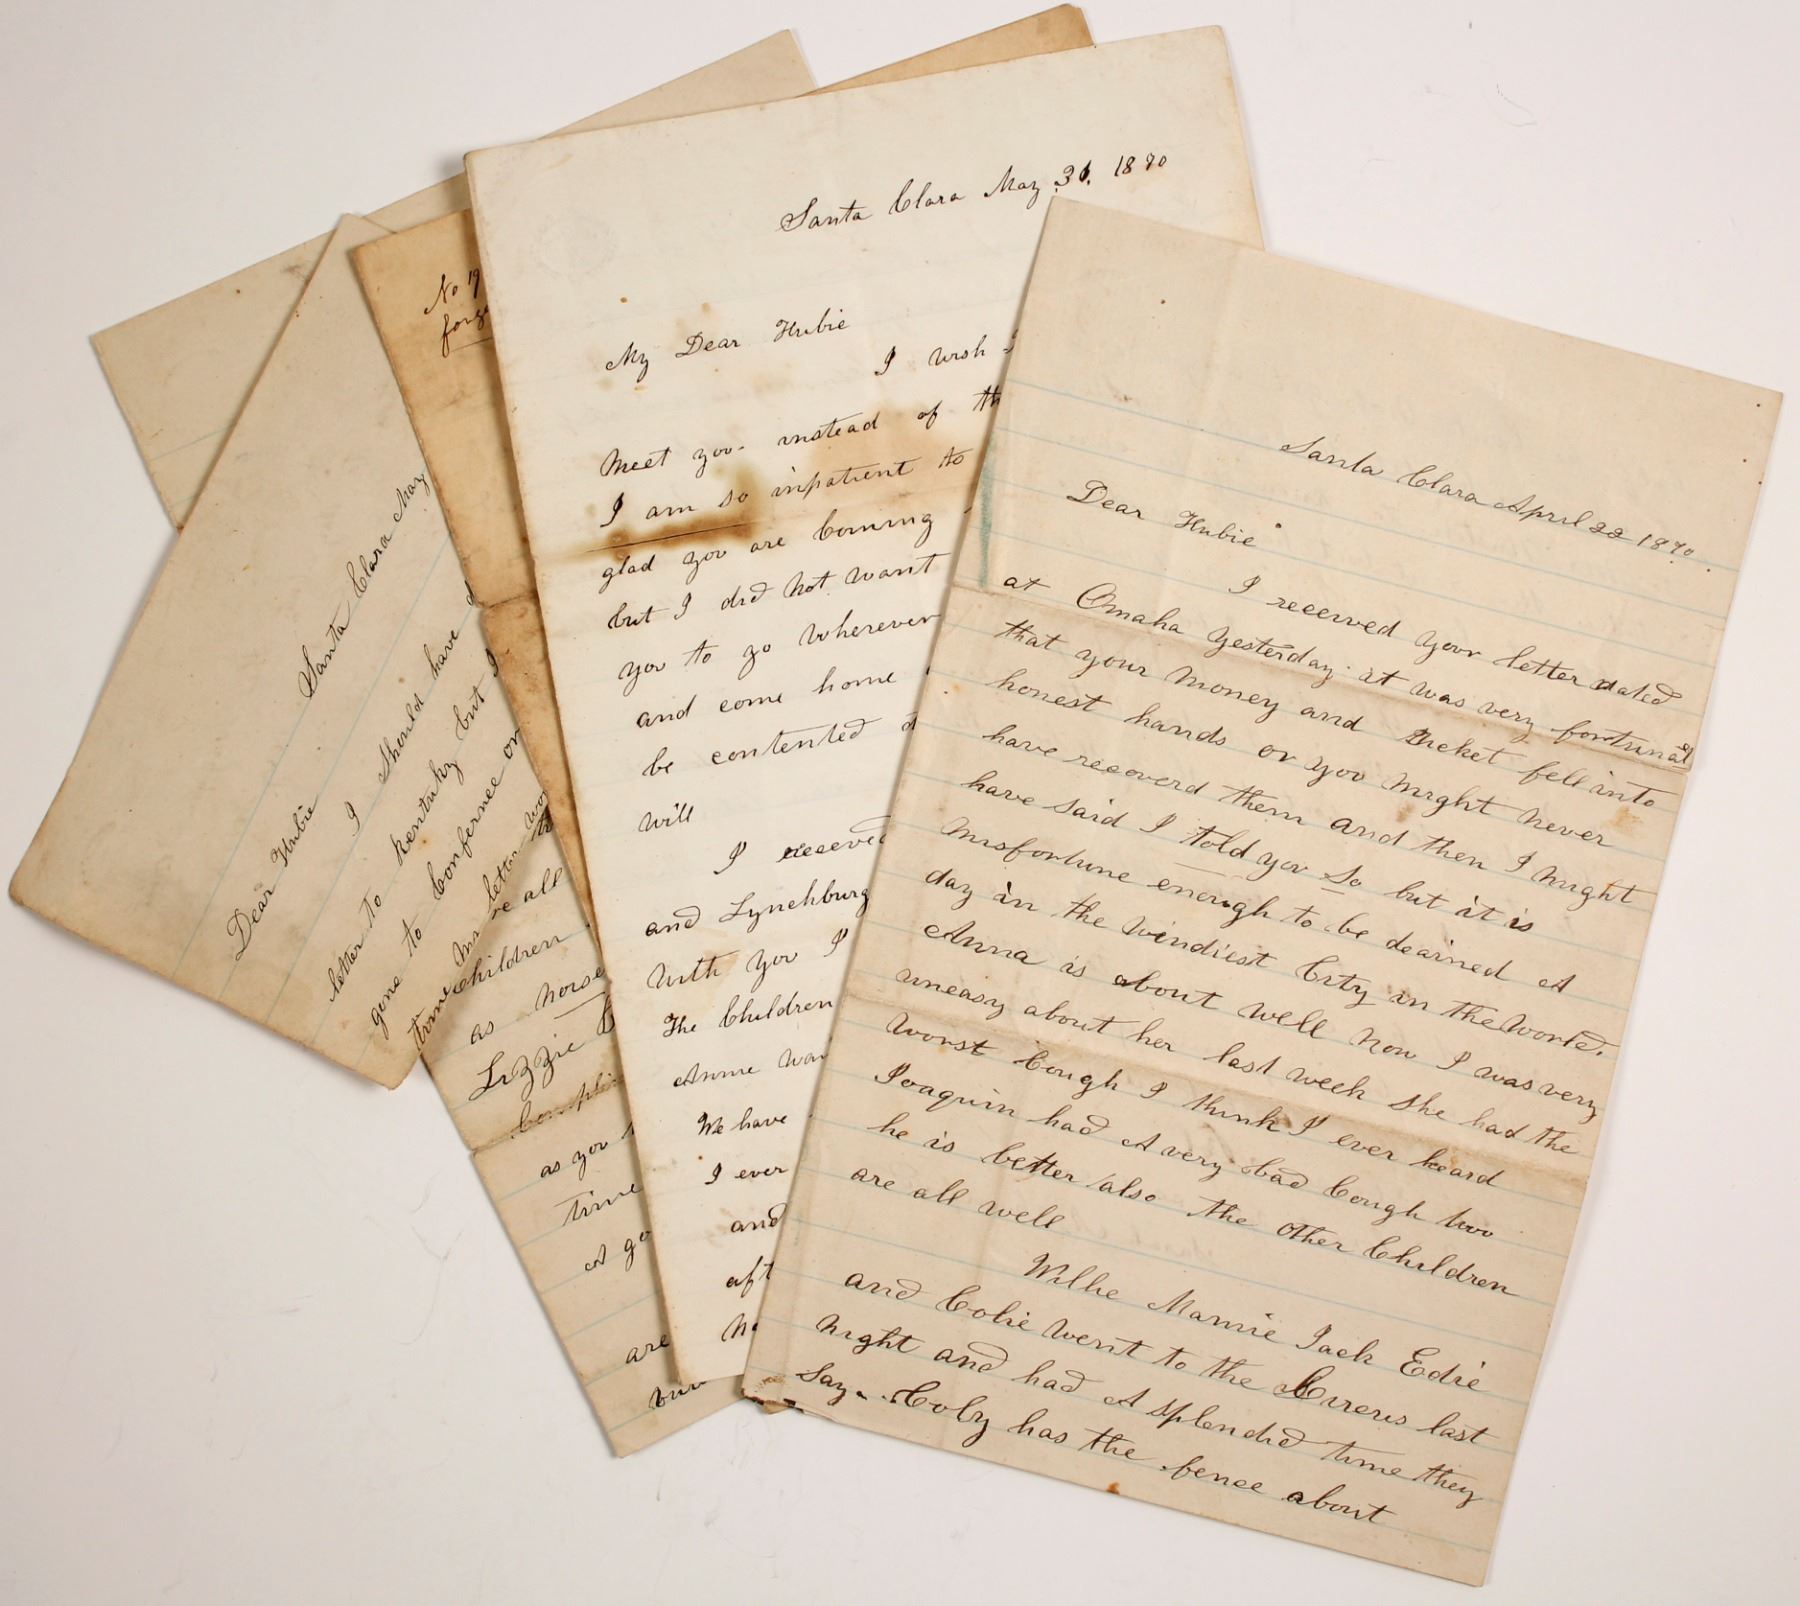 Santa Clara April 22 1870
Dear Hubie
I received your letter dated
at Omaha yesterday. it was very fortunate
that your money and ticket fell into
honest hands or you might never
have recoverd them and then I might
have said I told you So but it is
misfortune enough to be deained A
day in the windiest City in the world.
Anna is about well now I was very
uneasy about her last week She had the
worst Cough I think I ever heard
Joaquin had A very bad Cough two
he is better also the other Children
are all well
Willie Mamie Jack Edie
and Colie went to the Circus last
night and had A splendid time they
Say. Coly has the fence about
Santa Clara May 31. 1870
My Dear Hubie
I wish
meet you instead of th
I am so inpatient to
glad you are Coming
but I did not want
you to go wherever
and come home
be contented
will
I received
and Lynchburg
with you I
The Children
Annie wan
We have
I ever
and
aft
Santa Clara May
Dear Hubie
I Should have
letter to kentuky but I
gone to Conference or
time
No 19
forge
letter
re all
Children
as Norse
Lizzie
Compli
as you
time
A go
are